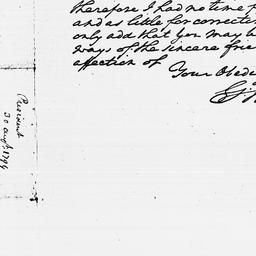 therefore I had no time
and as little for correcti
only add that you may
ways of the sincere frie
affection of
Your Obed
President
30 Augt. 1794